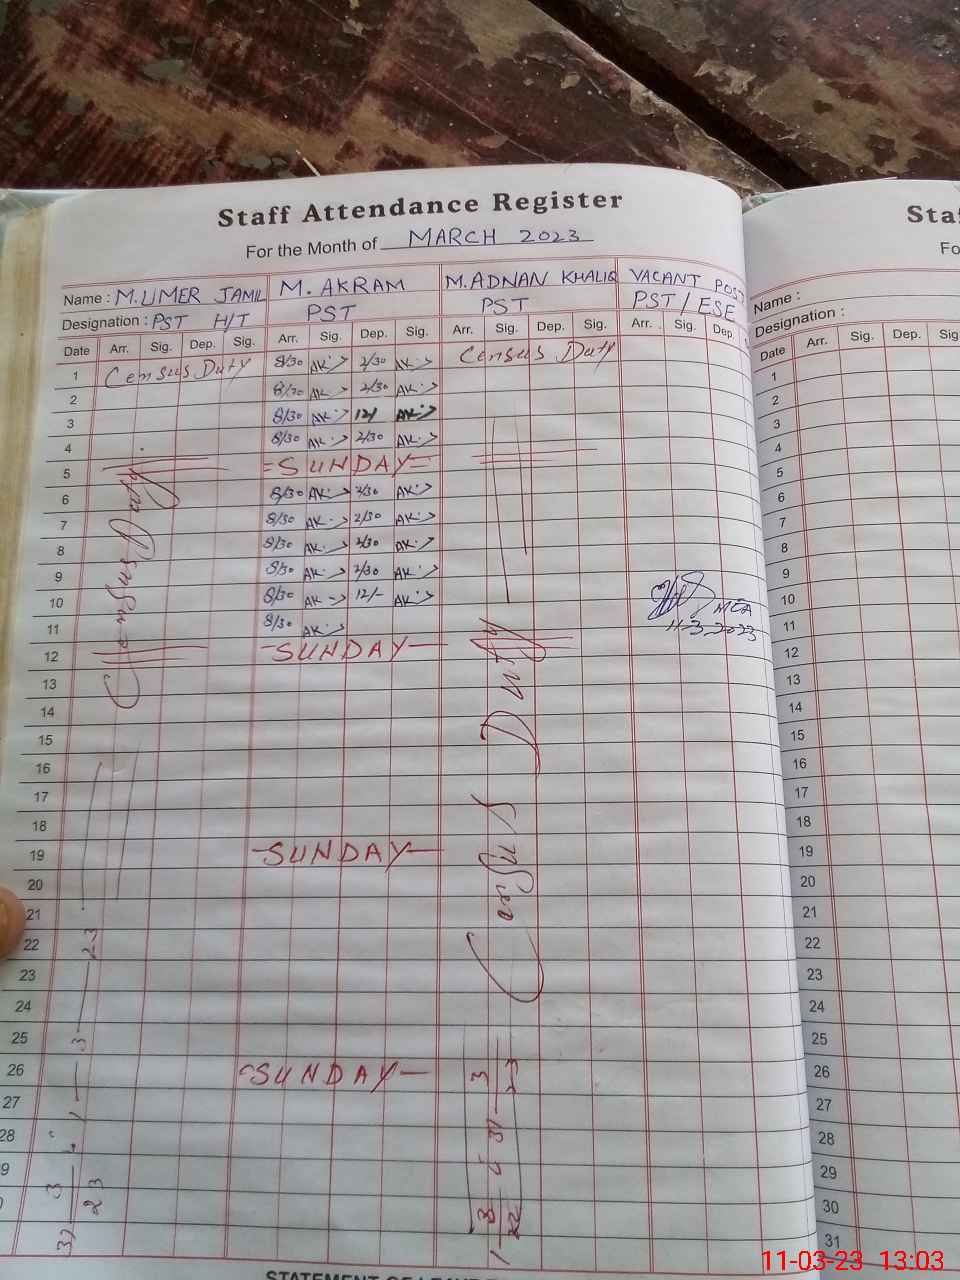 Staff Attendance Register
For the Month of MARCH 2023
Name : M.UMER JAMIL M. AKRAM M.ADNAN KHALIQ VACANT POST
Designation : PST H/T PST PST PST / ESE
Date Arr. Sig. Dep. Sig. Arr. Sig. Dep. Sig. Arr. Sig. Dep. Sig. Arr. Sig. Dep.
1 Census Duty 8/30 AK 2/30 AK Census Duty
2 8/30 AK 2/30 AK
3 8/30 AK 12/ AK
4 8/30 AK 2/30 AK
5 SUNDAY
6 8/30 AK 2/30 AK
7 8/30 AK 2/30 AK
8 8/30 AK 2/30 AK
9 8/30 AK 2/30 AK
10 8/30 AK 12/- AK
11 8/30 AK
12 SUNDAY
13
14
15
16
17
18
19 SUNDAY
20
21
22
23
24
25
26 SUNDAY
27
28
9
Census Duty
Census Duty
MEA
11-3-2023
STATEMENT OF LEAVE
Sta
Fo
Name :
Designation :
Date Arr. Sig. Dep. Sig.
1
2
3
4
5
6
7
8
9
10
11
12
13
14
15
16
17
18
19
20
21
22
23
24
25
26
27
28
29
30
31
11-03-23 13:03